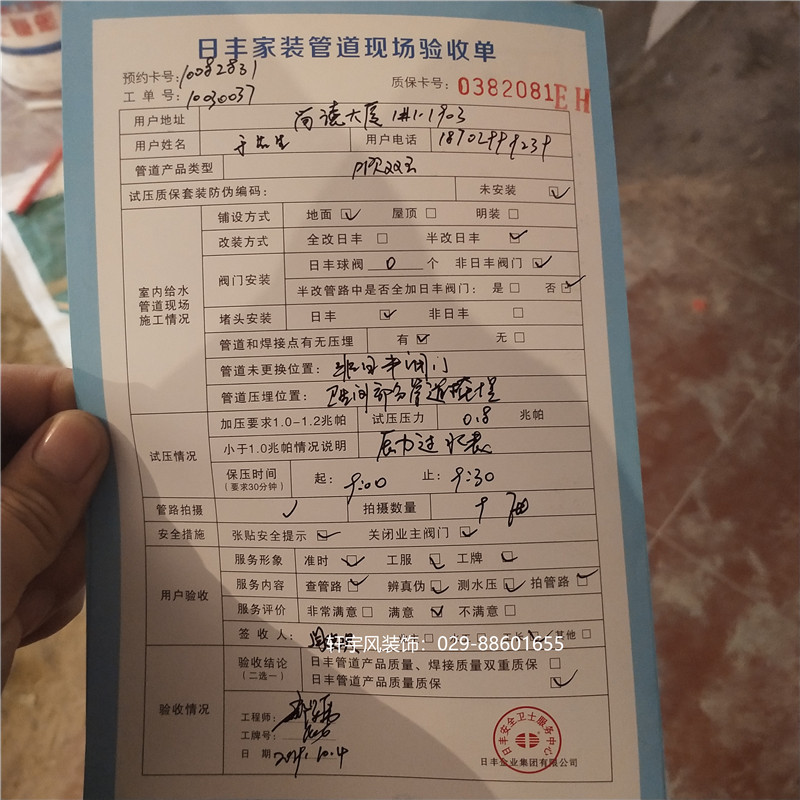 日丰家装管道现场验收单
预约卡号:10082831
质保卡号: 0382081EH
工单号: 1030037
用户地址 尚读大厦1#1-1903
用户姓名 于先生 用户电话 18702999239
管道产品类型 PPR双玉
试压质保套装防伪编码: 未安装 ☑
室内给水管道现场施工情况
铺设方式 地面 ☑ 屋顶 □ 明装 □
改装方式 全改日丰 □ 半改日丰 ☑
阀门安装 日丰球阀 0 个 非日丰阀门 ☑
半改管路中是否全加日丰阀门: 是 □ 否 ☑
堵头安装 日丰 ☑ 非日丰 □
管道和焊接点有无压埋 有 ☑ 无 □
管道未更换位置: 非日丰阀门
管道压埋位置: 卫生间部分管道压埋
试压情况
加压要求1.0-1.2兆帕 试压压力 0.8 兆帕
小于1.0兆帕情况说明 压力过水表
保压时间 (要求30分钟) 起: 9:00 止: 9:30
管路拍摄 ✓ 拍摄数量 十
安全措施 张贴安全提示 ☑ 关闭业主阀门 ☑
用户验收
服务形象 准时 ☑ 工服 ☑ 工牌 ☑
服务内容 查管路 ☑ 辨真伪 ☑ 测水压 ☑ 拍管路 ☑
服务评价 非常满意 □ 满意 ☑ 不满意 □
签收人: 其他 □
轩宇风装饰: 029-88601655
验收情况
验收结论 (二选一) 日丰管道产品质量、焊接质量双重质保 □
日丰管道产品质量质保 ☑
工程师:
工牌号:
日期 2019.10.4
日丰安全卫士服务中心
日丰企业集团有限公司